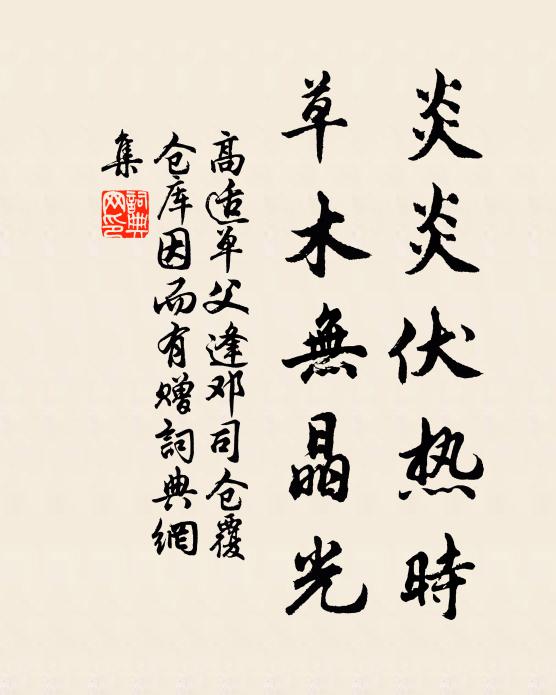 炎炎伏热時
草木無晶光
高适单父逢邓司仓覆
仓库因而有赠詞典網
集
詞典
网印